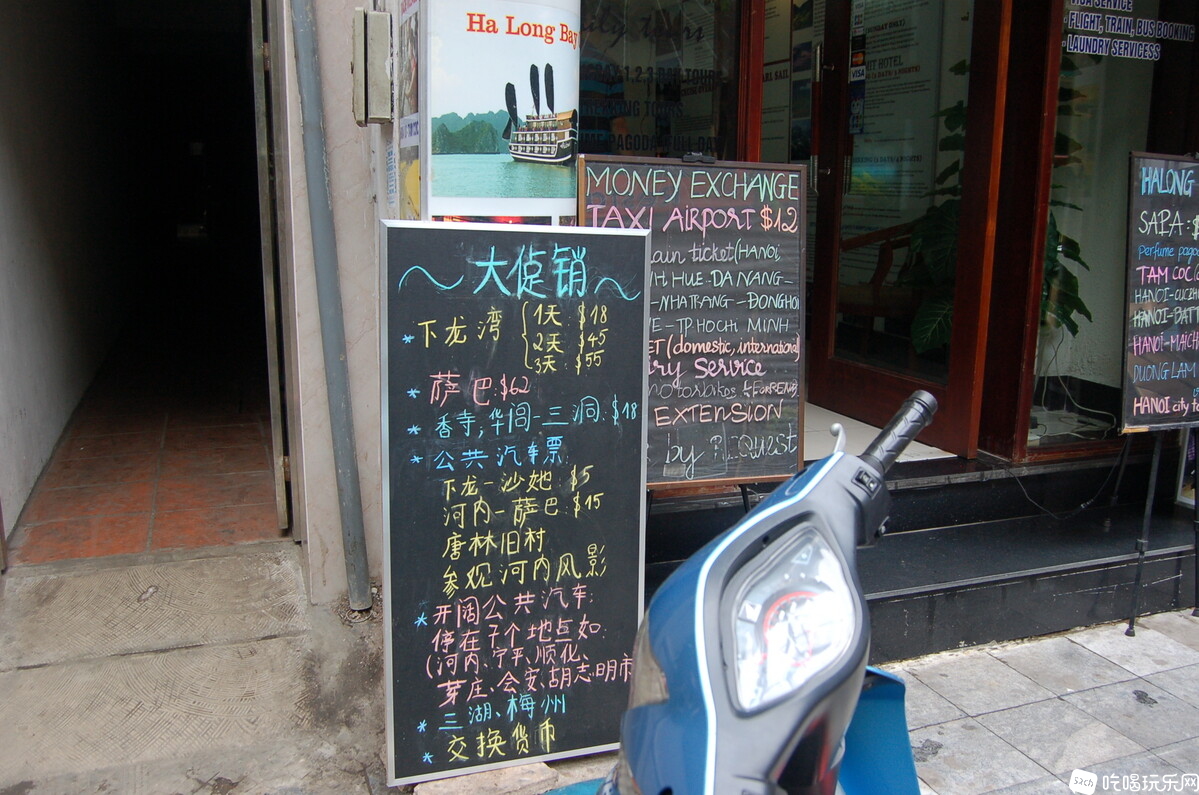 Ha Long Bay
VISA SERVICE
FLIGHT, TRAIN, BUS BOOKING
LAUNDRY SERVICESS
MONEY EXCHANGE
TAXI AiRPORT $12
ain ticket(HANOI
H HUE-DA NANG-
-NHATRANG-DONGHOI
E-TP.HOCHI MINH
ET (domestic, international)
ry Service
EXTENSION
by REQUEST
~大促销~
*下龙湾 1天:$18
2天:$45
3天:$55
*萨巴:$62
*香寺,华闾-三洞:$18
*公共汽车票:
下龙-沙她:$5
河内-萨巴:$15
唐林旧村
参观河内风影
*开阔公共汽车:
停在子个地点如:
(河内、宁平、顺化、
芽庄、会安、胡志明市
*三湖、梅州
*交换货币
HALONG
SAPA:$
perfume pago
TAM COC
HANOI-CUCPH
HANOI-BATT
HANOI-MAICH
DUONG LAM
HANOI city to
szch 吃喝玩乐网